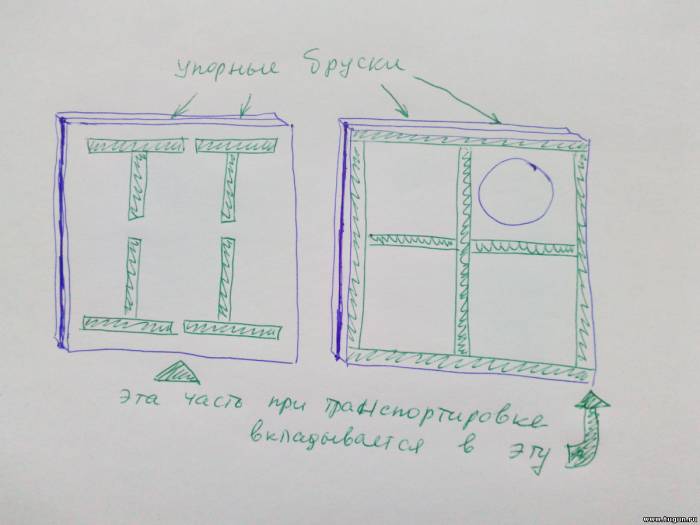 упорные бруски
эта часть при транспортировке
вкладывается в эту
www.tugun.ua